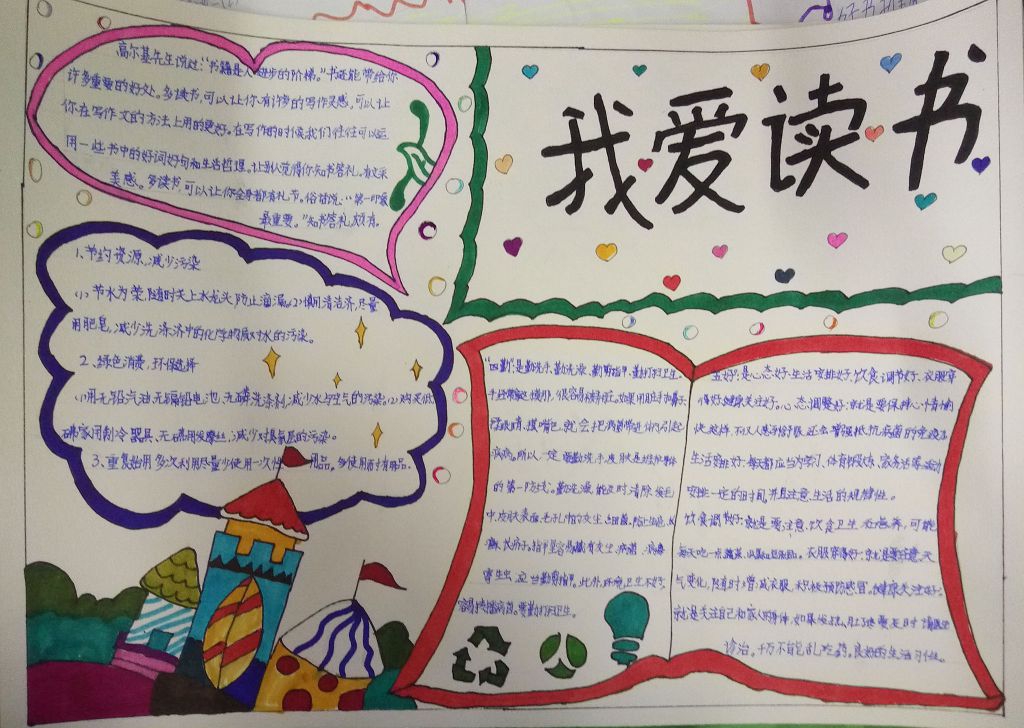 我爱读书
高尔基先生说过:"书籍是人进步的阶梯。"书还能带给你
许多重要的好处。多读书,可以让你有许多的写作灵感,可以让
你在写作文的方法上用的更好。在写作的时候,我们往往可以运
用一些书中的好词好句和生活哲理。让别人觉得你知书答礼。有文采
美感。多读书,可以让你全身都有礼节。俗话说:"第一印象
最重要。"知书答礼,
1、节约资源,减少污染
(1)节水为荣,随时关上水龙头,防止滴漏。(2)慎用清洁济,尽量
用肥皂,减少洗涤济中的化学物质对水的污染。
2、绿色消费,环保选择
(1)用无铅汽油,无镉铅电池,无磷洗涤剂,减少水与空气的污染。(2)购买低
家用制冷器具,无发摩丝,减少对臭氧层的污染。
3、重复始用,多次利用尽量少使用一次性用品。多使用耐用品。
"四勤":是勤洗手、勤洗澡、勤剪指甲、勤打扫卫生。
手经常触摸,很容易被弄脏。如果用脏手
揉眼睛,摸嘴巴,就会把病菌带进体内引起
疾病。所以一定要勤洗手。皮肤是
的第一防线。勤洗澡能及时清除
皮肤表面、毛孔中的灰尘、细菌,防止
指甲里容易藏有灰尘、病菌、病毒
寄生虫,应当勤剪指甲。此外,环境卫生不好,
容易传播病菌,要勤打扫卫生。
五好":是心态好、生活安排好、饮食调节好、衣服穿
得好、健康关注好。心态调整好:就是要保持心情愉
快这样,不仅人感到舒服,还会增强抵抗病菌的免疫力
生活安排好:每天都应当为学习、体育锻炼、家务活等活动
安排一定的时间,并且注意生活的规律性。
饮食调节好:就是要注意饮食卫生
每天吃一点蔬菜、衣服穿得好:就是要注意天
气变化,随时增减衣服,积极预防感冒。健康关注好:
就是关注自己和家人的身体,如果发烧、咳嗽要及时请医生
诊治。千万不能乱吃药。良好的生活习惯。